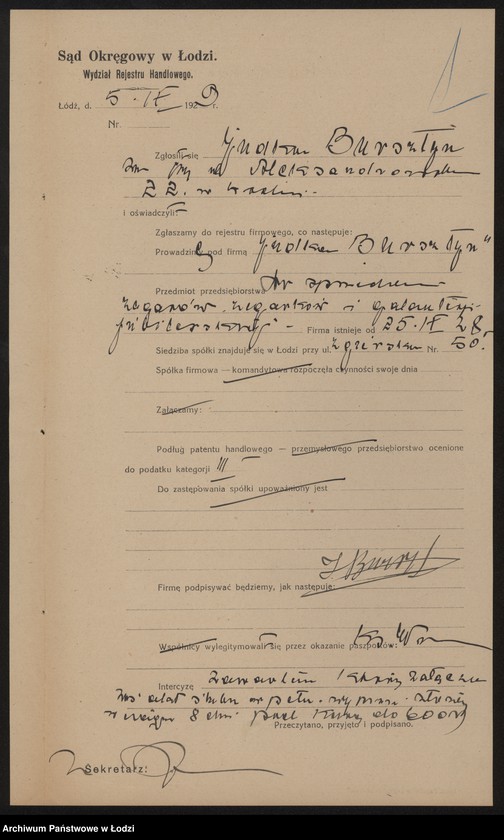 Sąd Okręgowy w Łodzi.
Wydział Rejestru Handlowego.
Łódź, d. 5. IX 1929 r.
Nr.
Zgłosił się Judka Bursztyn
Aleksandrowska
22. w Łodzi.
i oświadczył:
Zgłaszamy do rejestru firmowego, co następuje:
Prowadzi pod firmą „Judka Bursztyn”
Przedmiot przedsiębiorstwa
zegarów, zegarków i galanterji
jubilerskiej – Firma istnieje od 25. IX 28
Siedziba spółki znajduje się w Łodzi przy ul. Zgierska Nr. 50.
Spółka firmowa — komandytowa rozpoczęła czynności swoje dnia
Załączamy:
Podług patentu handlowego — przemysłowego przedsiębiorstwo ocenione
do podatku kategorji III
Do zastępowania spółki upoważniony jest
Firmę podpisywać będziemy, jak następuje:
Wspólnicy wylegitymowali się przez okazanie paszportów:
Intercyzę zawarłem
8 dni pod do 600 zł
Przeczytano, przyjęto i podpisano.
Sekretarz:
Archiwum Państwowe w Łodzi